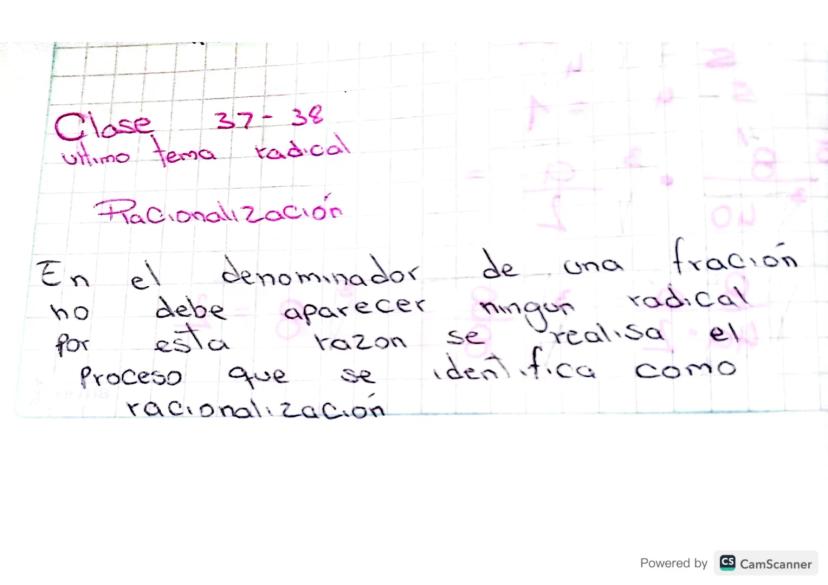 Clase 37-38
ultimo tema radical
Racionalización
En el denominador de una fración
no debe aparecer ningun radical
por esta razon se realisa el
proceso que se identifica como
racionalización
Powered by CS CamScanner